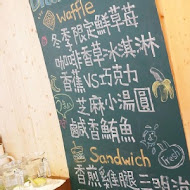 waffle
冬季限定鮮草莓
咖啡拌香草冰淇淋
香蕉VS巧克力
芝麻小湯圓
鹹香鮪魚
Sandwich
香煎雞腿三明治